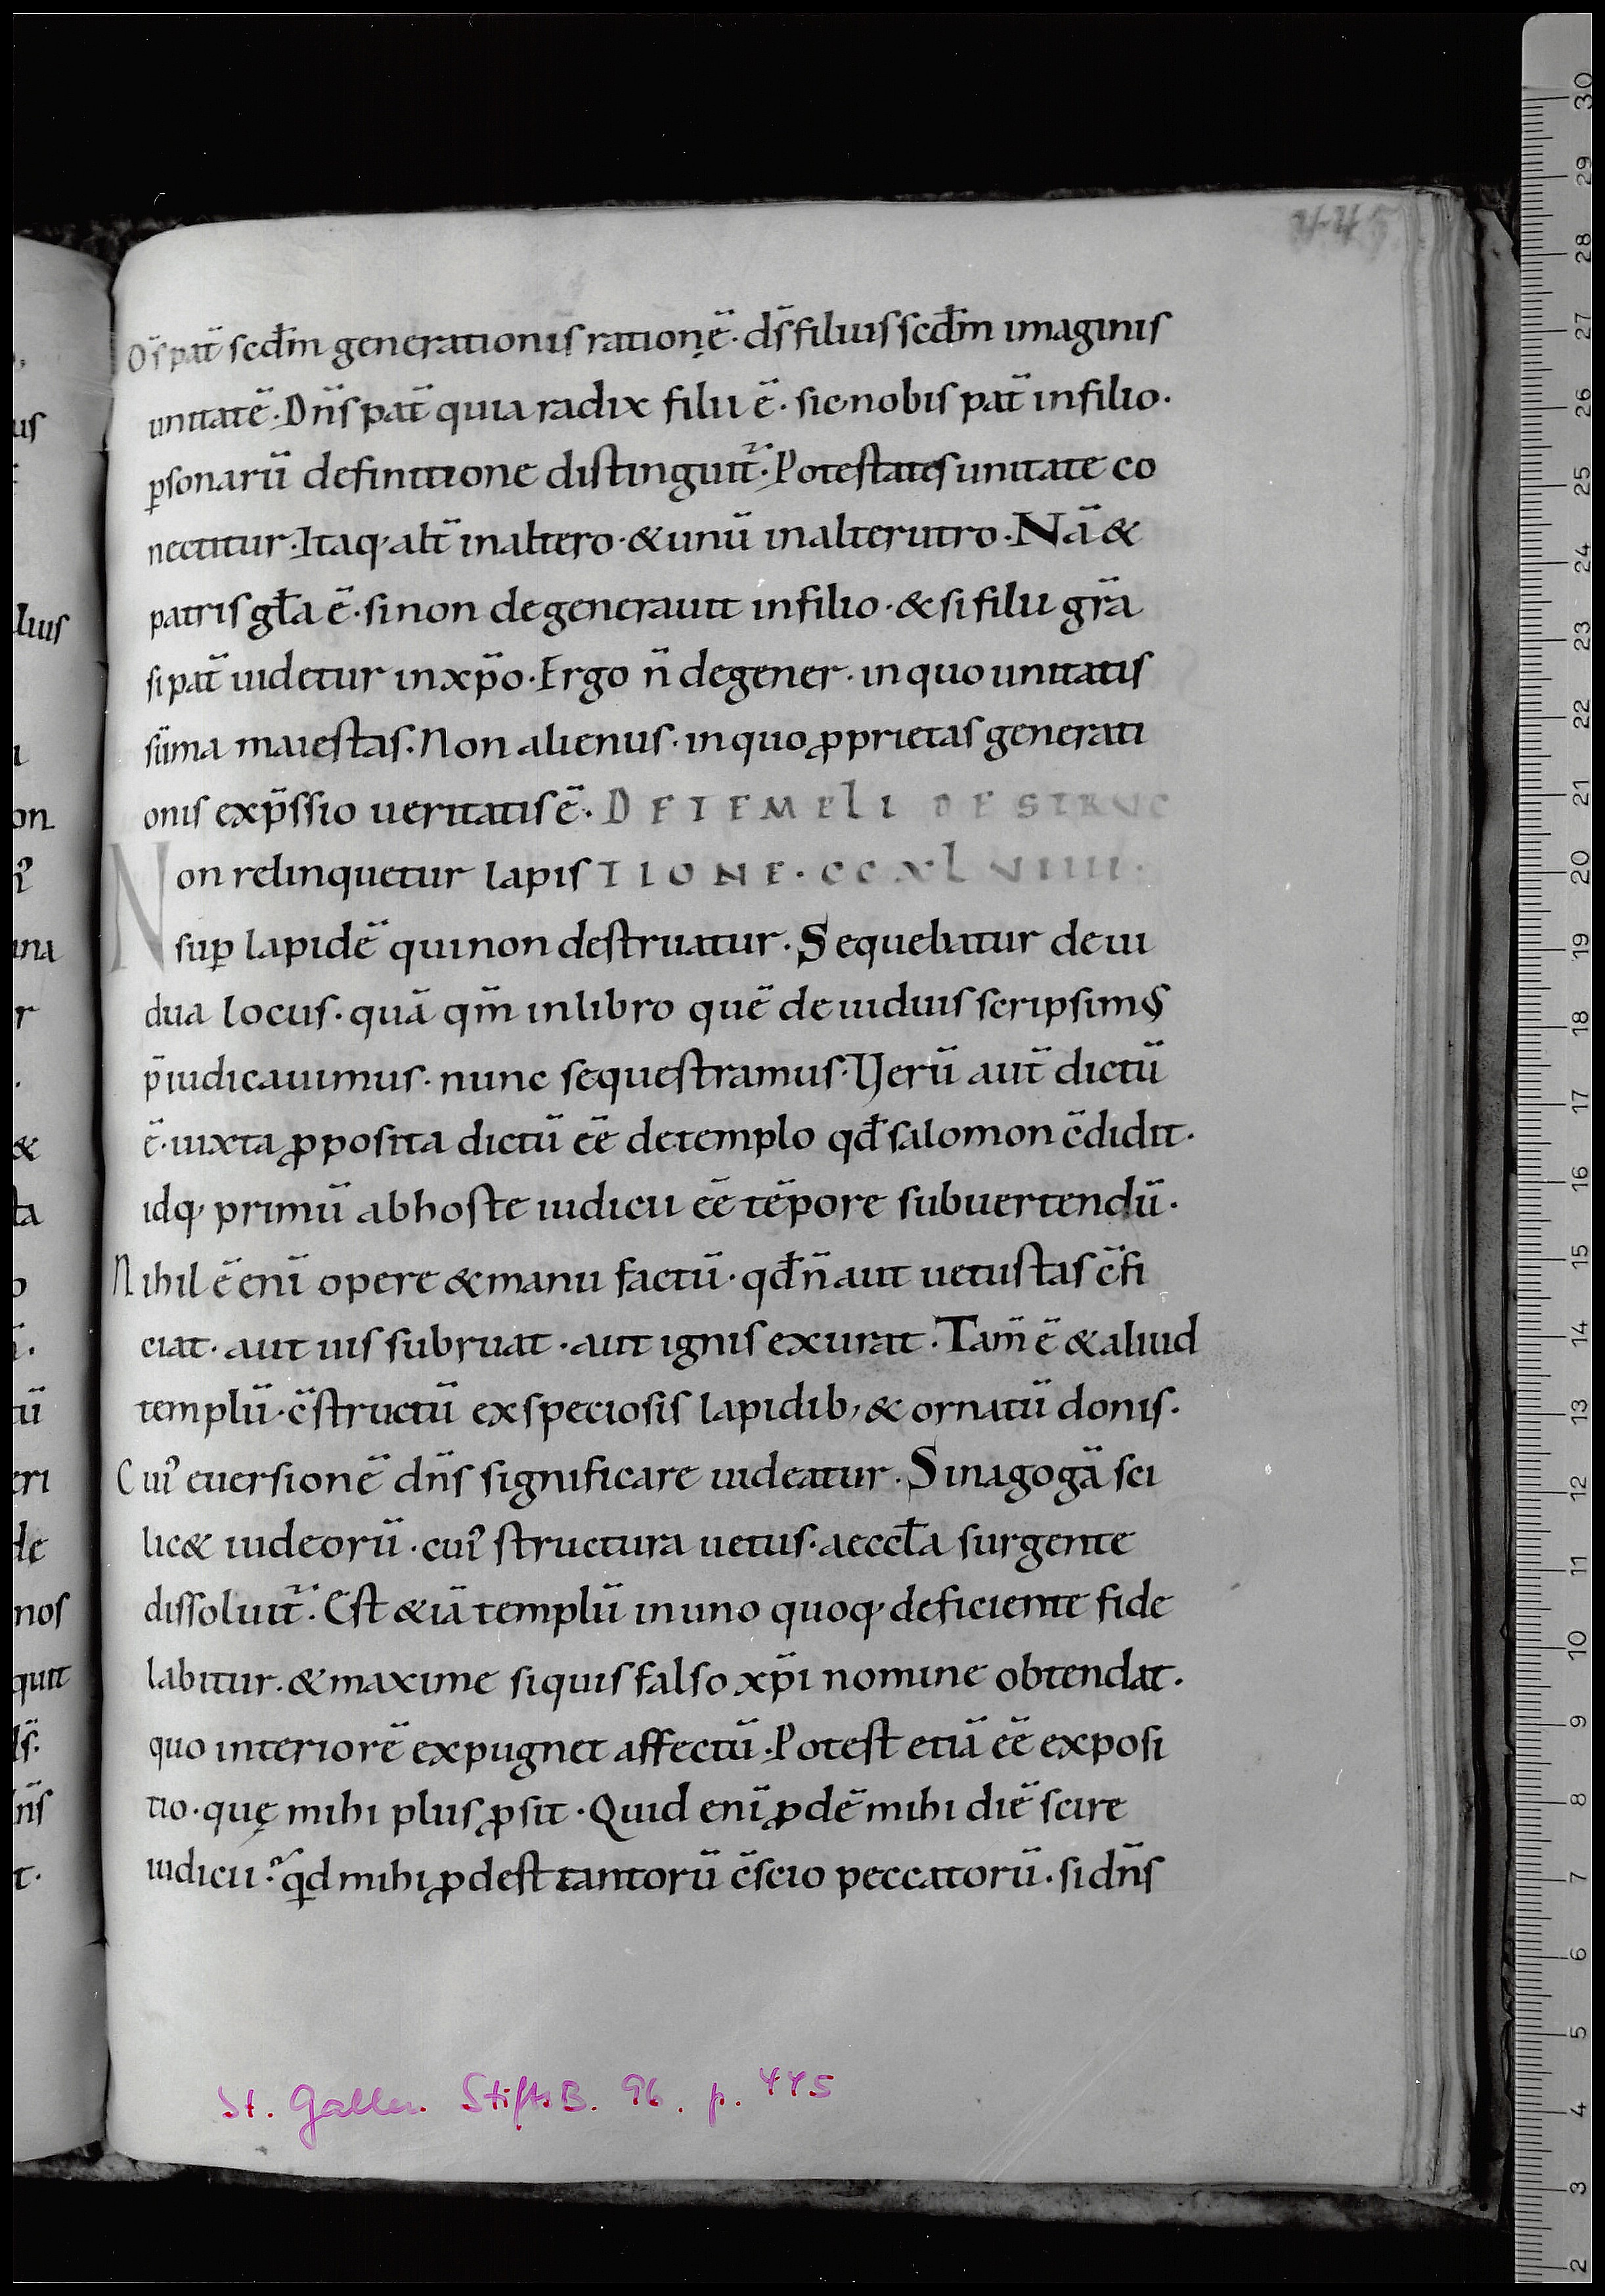 445
Ds̄ pat̄ scd̄m generationis rationē · ds̄ filius scd̄m imaginis
unitatē · Dn̄s pat̄ quia radix filii ē · sic nobis pat̄ in filio ·
ꝑsonarū definitione distinguit᷑ · Potestatis unitate co
nectitur · Itaq· alt̄ in altero · & unū in alterutro · Nā &
patris gl̄a ē · si non degenerauit in filio · & si filii gr̄a
si pat̄ uidetur in xp̄o · Ergo n̄ degener · in quo unitatis
sūma maiestas · Non alienus · in quo ꝓprietas generati
onis exp̄ssio ueritatis ē · DE TEMPLI DESTRUC
Non relinquetur lapis TIONE · CCXLVIIII ·
suꝑ lapidē qui non destruatur · Sequebatur de ui
dua locus · quā qm̄ in libro quē de uiduis scripsimꝰ
p̄iudicauimus · nunc sequestramus · Uerū aut̄ dictū
ē · iuxta ꝓposita dictū eē de templo qd̄ salomon c̄didit ·
idq· primū ab hoste iudicii eē tēpore subuertendū ·
Nihil ē enī opere & manu factū · qd̄ n̄ aut uetustas c̄fi
ciat · aut uis subruat · aut ignis exurat · Tam̄ ē & aliud
templū · c̄structū ex speciosis lapidib; & ornatū donis ·
Cuiꝰ euersionē dn̄s significare uideatur · Sinagogā sci
lic& iudeorū · cuiꝰ structura uetus · aeccl̄a surgente
dissoluit᷑ · Est & iā templū in uno quoq· deficiente fide
labitur · & maxime si quis falso xp̄i nomine obtendat ·
quo interiorē expugnet affectū · Potest etiā eē exposi
tio · quę mihi plus ꝓsit · Quid enī ꝓdē mihi diē scire
iudicii · qͥd mihi ꝓdest tantorū c̄scio peccatorū · si dn̄s
St. Gallen. StiftsB. 96. p. 445